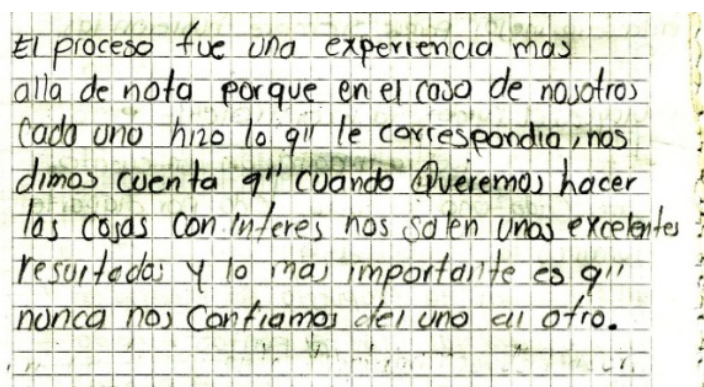 El proceso fue una experiencia mas
alla de nota porque en el caso de nosotros
cada uno hizo lo q" le correspondia, nos
dimos cuenta q" cuando Queremos hacer
las cosas con interes nos salen unas excelentes
resultados y lo mas importante es q"
nunca nos confiamos del uno al otro.